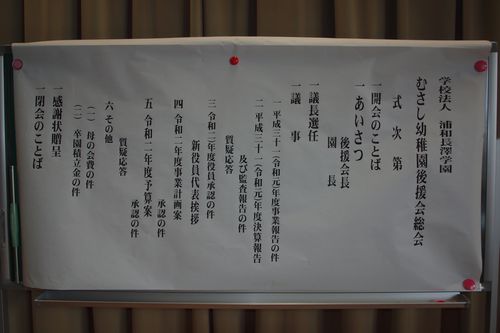 学校法人 浦和長澤学園
むさし幼稚園後援会総会
式次第
一 開会のことば
一 あいさつ
後援会長
園長
一 議長選任
一 議事
一 平成三十一(令和元)年度事業報告の件
二 平成三十一(令和元)年度決算報告
及び監査報告の件
質疑応答
三 令和二年度役員承認の件
新役員代表挨拶
四 令和二年度事業計画案
承認の件
五 令和二年度予算案
承認の件
質疑応答
六 その他
(一) 母の会費の件
(二) 卒園積立金の件
一 感謝状贈呈
一 閉会のことば